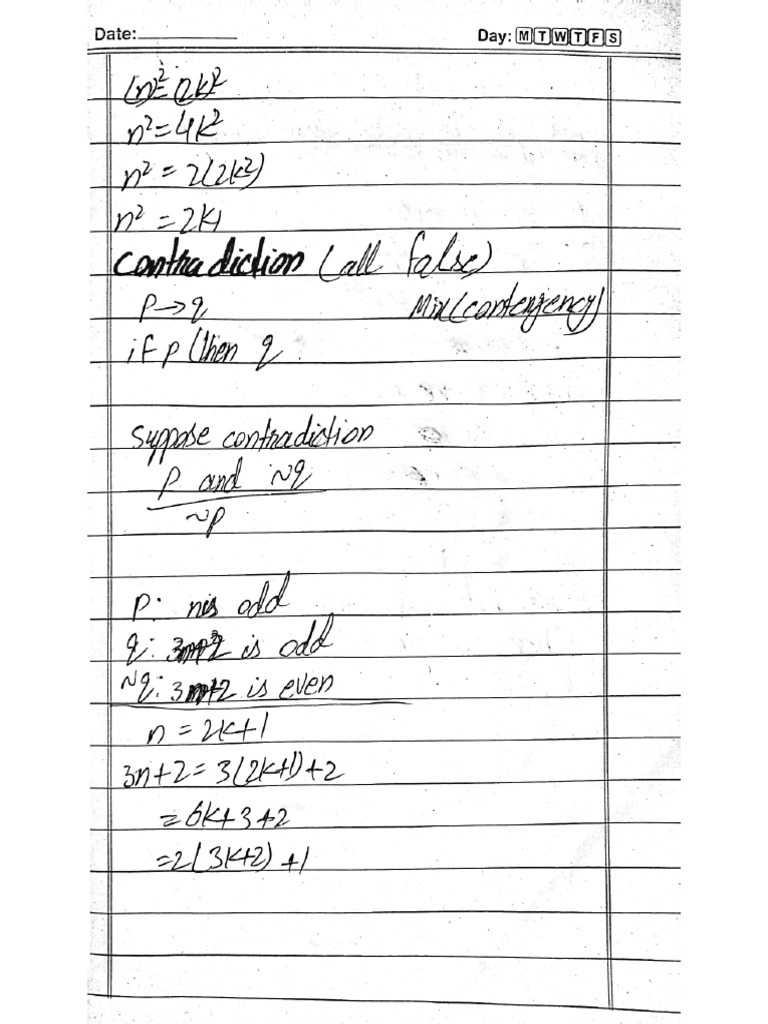 Date: Day: M T W T F S
(n)² = (2k)²
n² = 4k²
n² = 2(2k²)
n² = 2k₁
contradiction (all false)
P→q Mix(contengency)
if p (then q
suppose contradiction
P and ~q
~p
P: n is odd
q: is odd
~q: 3n+2 is even
n = 2k+1
3n+2 = 3(2k+1)+2
= 6k+3+2
=2(3k+2)+1